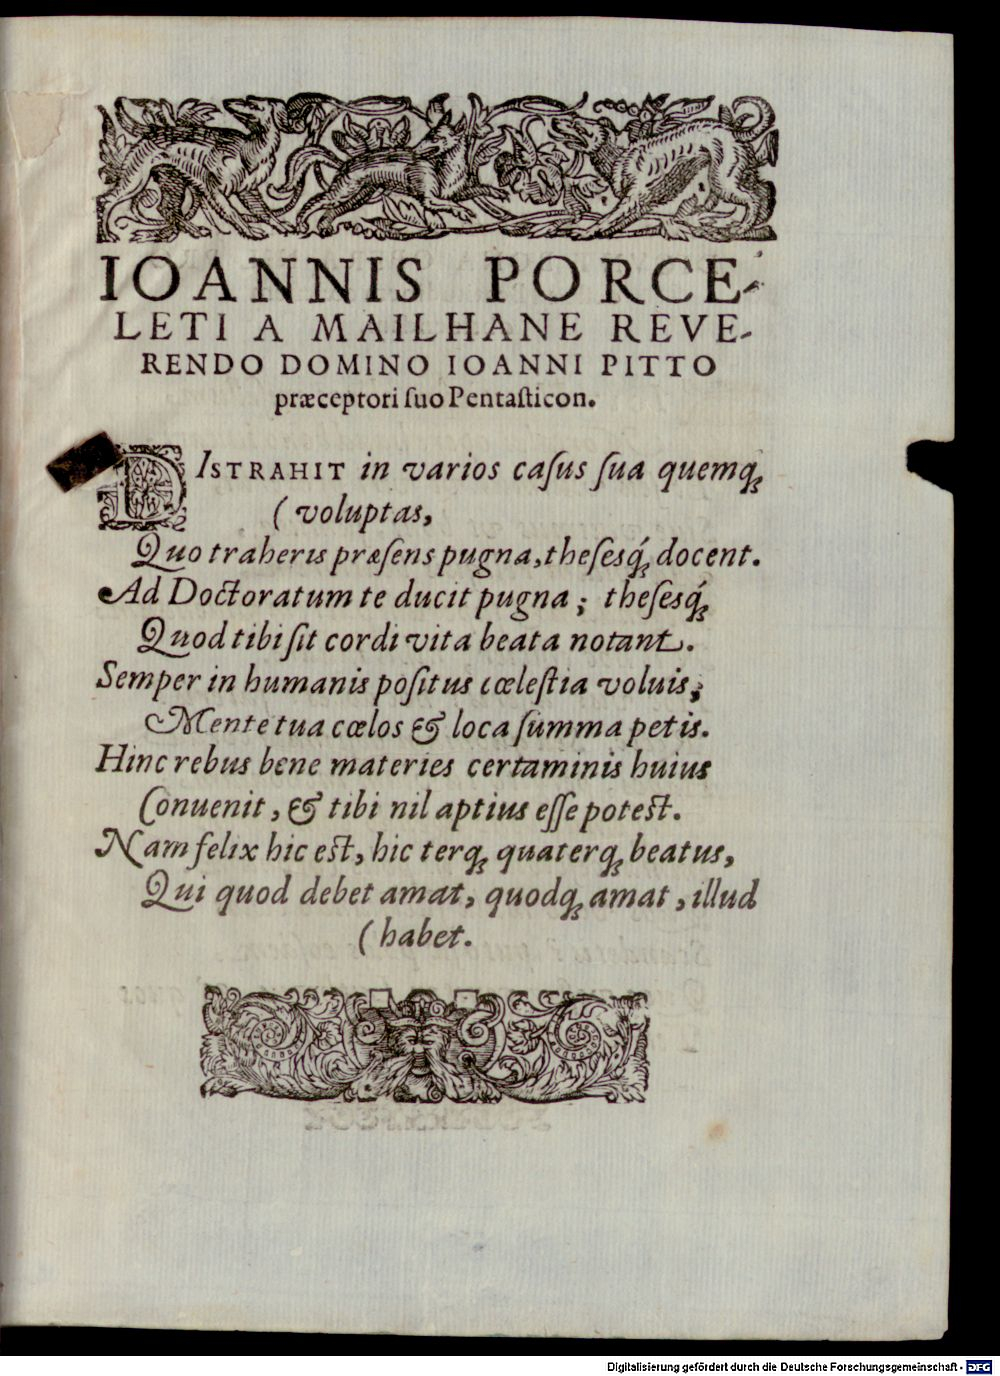 IOANNIS PORCE-
LETI A MAILHANE REVE-
RENDO DOMINO IOANNI PITTO
præceptori ſuo Pentaſticon.
DISTRAHIT in varios caſus ſua quemq́;
(voluptas,
Quo traheris præſens pugna, theſesq́; docent.
Ad Doctoratum te ducit pugna; theſesq́;
Quod tibi ſit cordi vita beata notant.
Semper in humanis poſitus cœleſtia voluis;
Mente tua cœlos & loca ſumma petis.
Hinc rebus bene materies certaminis huius
Conuenit, & tibi nil aptius eſſe poteſt.
Nam felix hic eſt, hic terq; quaterq; beatus,
Qui quod debet amat, quodq; amat, illud
(habet.
Digitalisierung gefördert durch die Deutsche Forschungsgemeinschaft - DFG